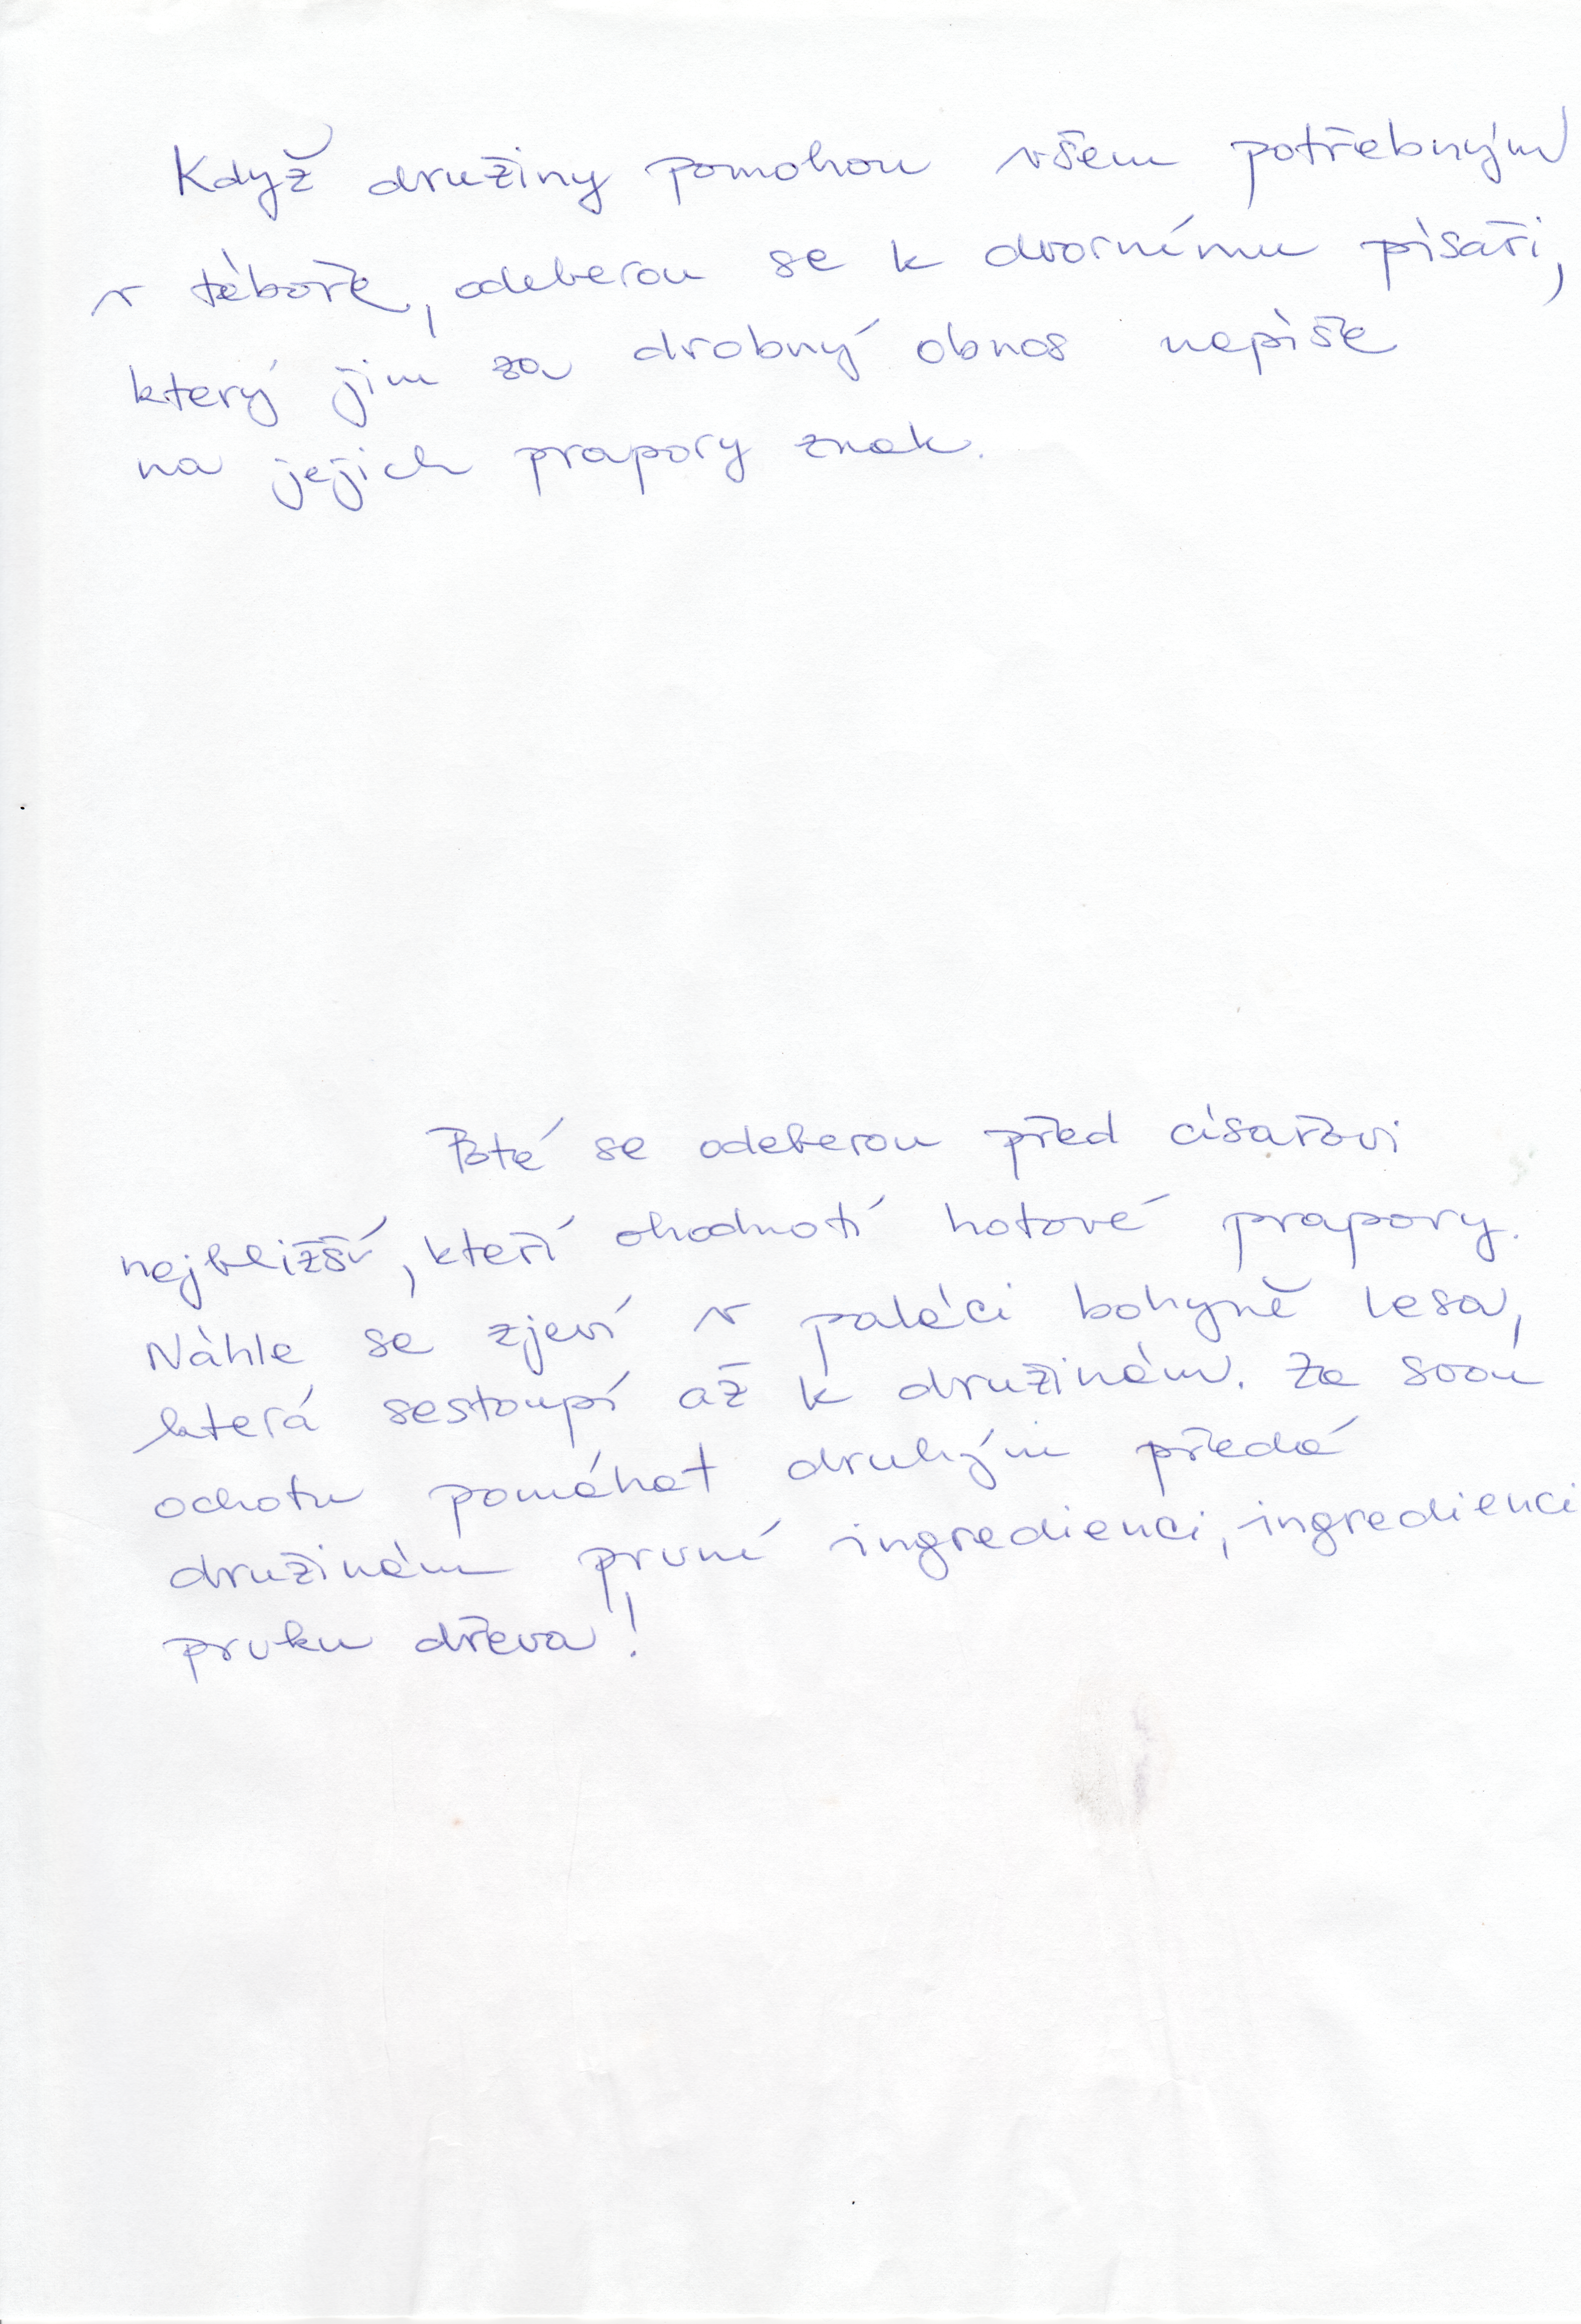 Když družiny pomohou všem potřebným
v táboře, odeberou se k dvornímu písaři,
který jim za drobný obnos napíše
na jejich prapory znak.
Poté se odeberou před císařovi
nejbližší, kteří ohodnotí hotové prapory.
Náhle se zjeví v paláci bohyně lesa,
která sestoupí až k družinám. Za svou
ochotu pomáhat druhým předá
družinám první ingredienci, ingredienci
prvku dřeva!